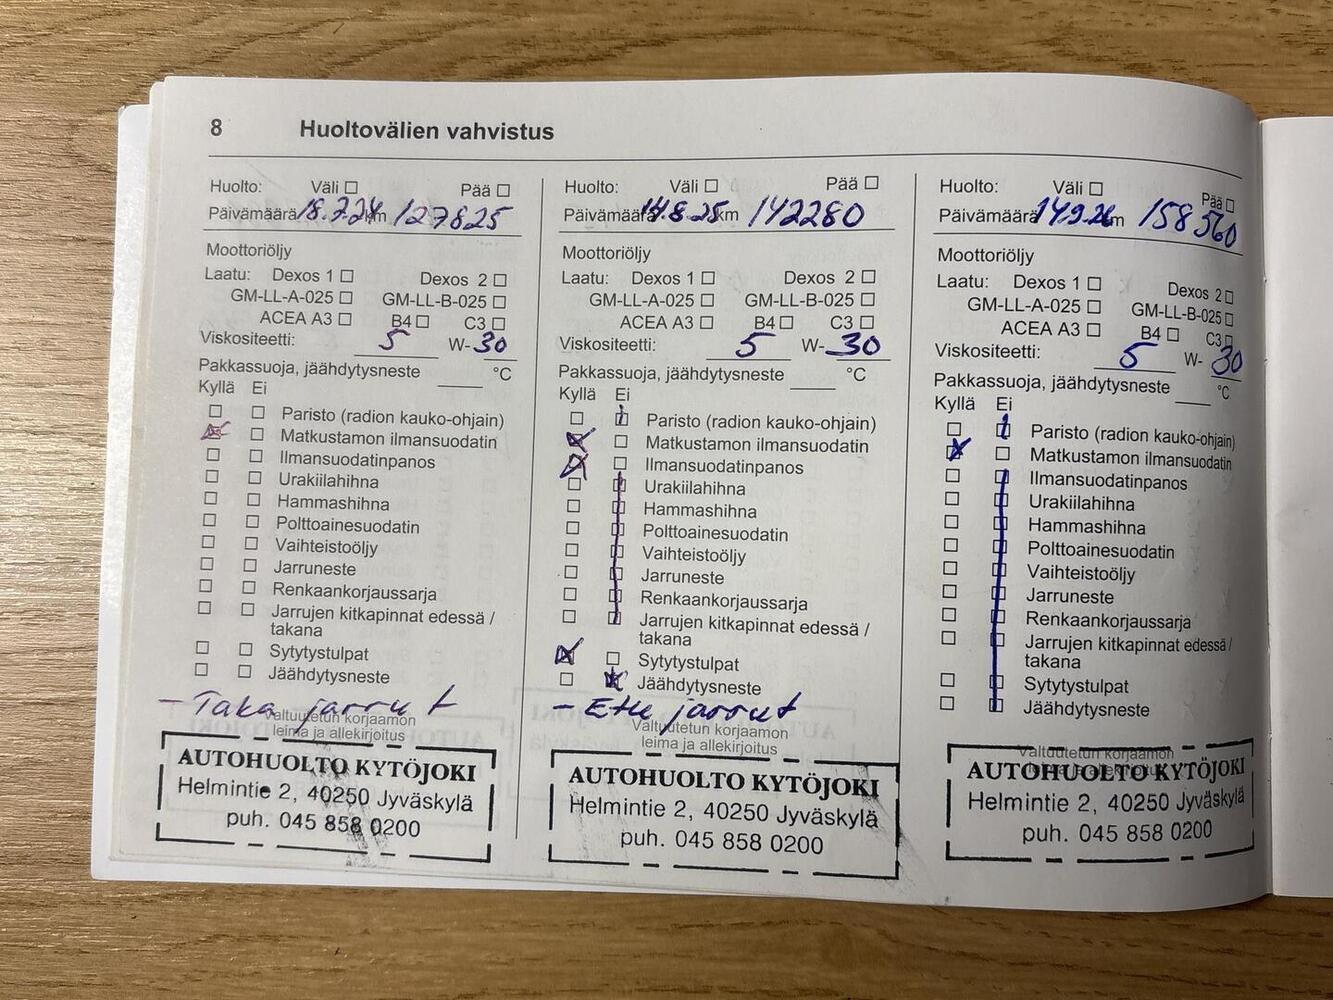 8 Huoltovälien vahvistus
Huolto: Väli Pää
Päivämäärä 18.7.24 km 127825
Moottoriöljy
Laatu: Dexos 1 Dexos 2
GM-LL-A-025 GM-LL-B-025
ACEA A3 B4 C3
Viskositeetti: 5 W-30
Pakkassuoja, jäähdytysneste °C
Kyllä Ei
Paristo (radion kauko-ohjain)
Matkustamon ilmansuodatin
Ilmansuodatinpanos
Urakiilahihna
Hammashihna
Polttoainesuodatin
Vaihteistoöljy
Jarruneste
Renkaankorjaussarja
Jarrujen kitkapinnat edessä /
takana
Sytytystulpat
Jäähdytysneste
- Taka jarrut
Valtuutetun korjaamon
leima ja allekirjoitus
AUTOHUOLTO KYTÖJOKI
Helmintie 2, 40250 Jyväskylä
puh. 045 858 0200
Huolto: Väli Pää
Päivämäärä 14.8.25 km 142280
Moottoriöljy
Laatu: Dexos 1 Dexos 2
GM-LL-A-025 GM-LL-B-025
ACEA A3 B4 C3
Viskositeetti: 5 W-30
Pakkassuoja, jäähdytysneste °C
Kyllä Ei
Paristo (radion kauko-ohjain)
Matkustamon ilmansuodatin
Ilmansuodatinpanos
Urakiilahihna
Hammashihna
Polttoainesuodatin
Vaihteistoöljy
Jarruneste
Renkaankorjaussarja
Jarrujen kitkapinnat edessä /
takana
Sytytystulpat
Jäähdytysneste
- Etu jarrut
Valtuutetun korjaamon
leima ja allekirjoitus
AUTOHUOLTO KYTÖJOKI
Helmintie 2, 40250 Jyväskylä
puh. 045 858 0200
Huolto: Väli Pää
Päivämäärä km 158560
Moottoriöljy
Laatu: Dexos 1 Dexos 2
GM-LL-A-025 GM-LL-B-025
ACEA A3 B4 C3
Viskositeetti: 5 W- 30
Pakkassuoja, jäähdytysneste °C
Kyllä Ei
Paristo (radion kauko-ohjain)
Matkustamon ilmansuodatin
Ilmansuodatinpanos
Urakiilahihna
Hammashihna
Polttoainesuodatin
Vaihteistoöljy
Jarruneste
Renkaankorjaussarja
Jarrujen kitkapinnat edessä /
takana
Sytytystulpat
Jäähdytysneste
Valtuutetun korjaamon
AUTOHUOLTO KYTÖJOKI
Helmintie 2, 40250 Jyväskylä
puh. 045 858 0200